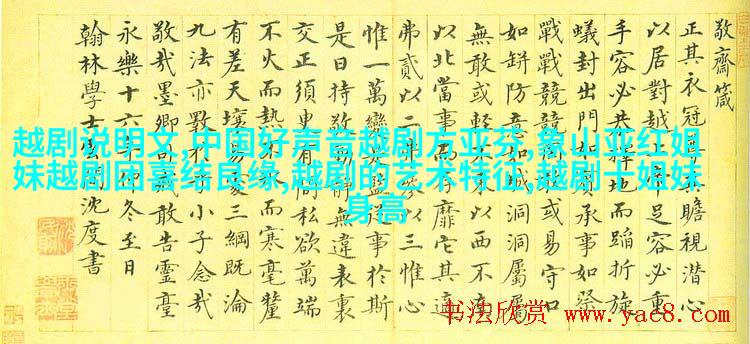 越剧说明文,中国好声音越剧方亚芬,象山亚红姐
妹越剧团喜结良缘,越剧的艺术特征,越剧十姐妹
身高
敬齋箴
正其衣冠其瞻視潛心
以居對越足容必重
手容必地而蹈折旋
蟻封出門如承事如祭
戰戰兢兢或易守口
如缾防意洞洞屬屬
無敢或以西不南
以北當事而存靡它其適
弗貳以二以三惟心
惟一萬變事於斯
是曰持敬無違表裏
交正須臾有間私欲萬端
不火而熱而寒毫釐
有差天壤易三綱既淪
九法亦斁小子念哉
敬哉墨卿敢告靈臺
永樂十六冬至日
翰林學士沈度書
书法欣赏
www.yac8.com